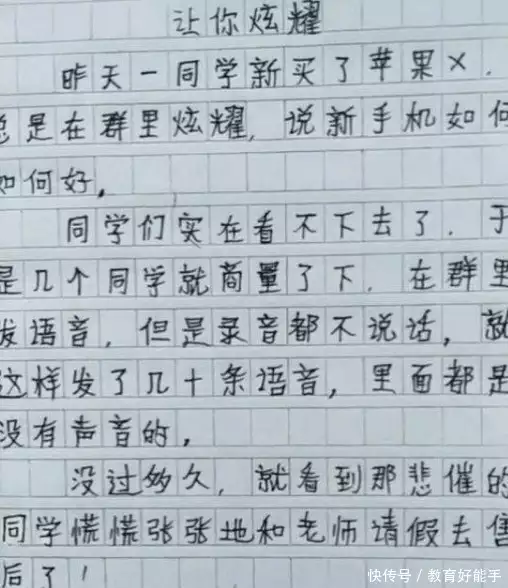 让你炫耀
昨天一同学新买了苹果X.
总是在群里炫耀,说新手机如何
如何好.
同学们实在看不下去了.于
是几个同学就商量了下.在群里
发语音,但是录音都不说话,就
这样发了几十条语音,里面都是
没有声音的,
没过多久,就看到那悲催的
同学慌慌张张地和老师请假去售
后了!
快传号/教育好能手